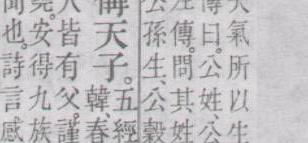 氣所以生
傳曰。公姓、公
左傳。問其姓
公孫生、公穀
天子。五經
韓、春
人皆有父。謹
堯。安得九族
聞也。詩言感